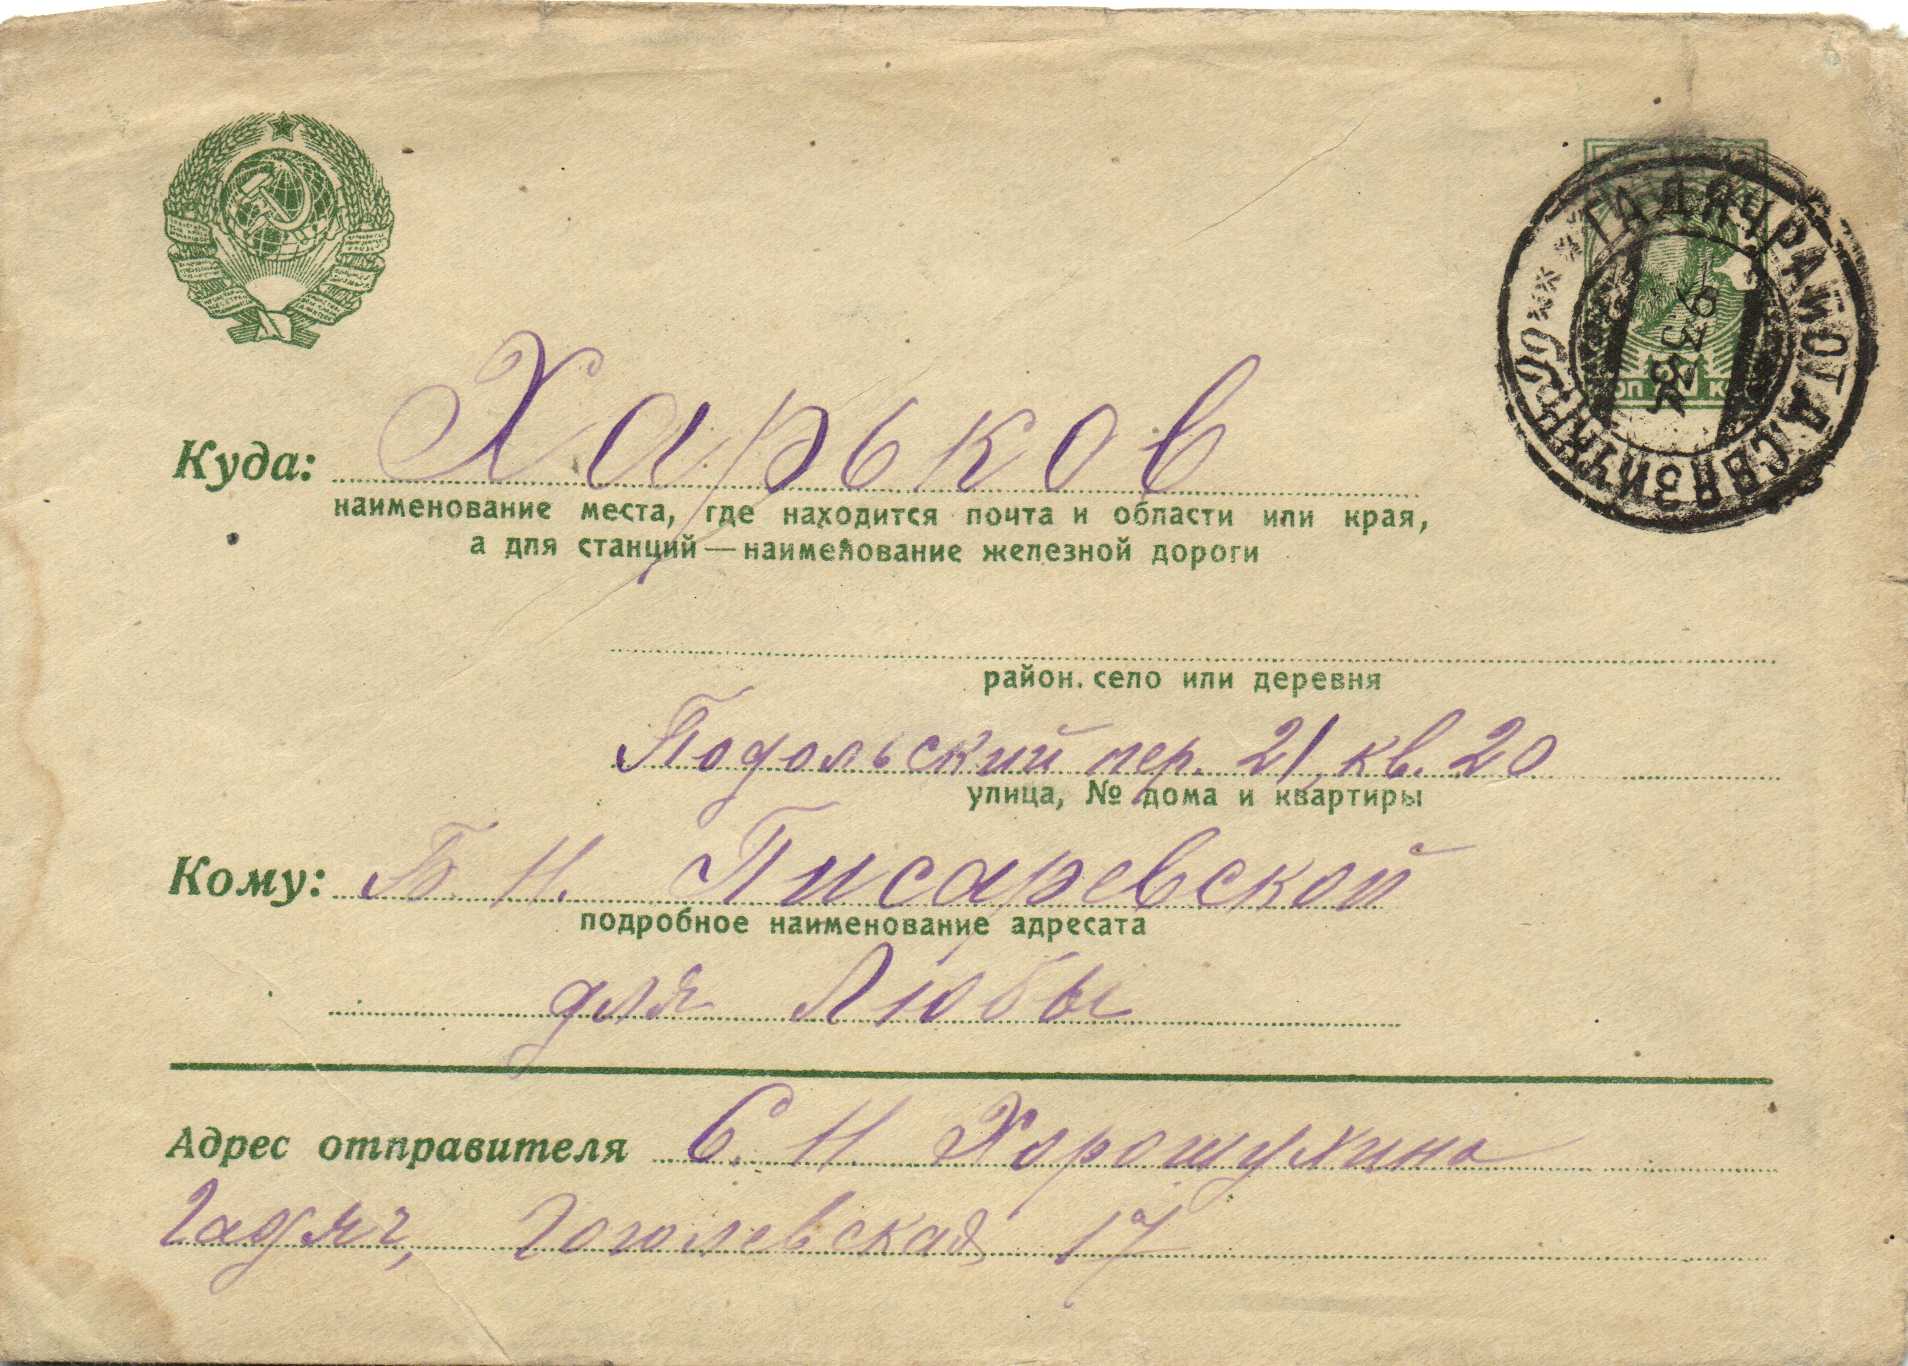 Куда: Харьков
наименование места, где находится почта и области или края,
а для станций—наименование железной дороги
район. село или деревня
Подольский пер. 21, кв. 20
улица, № дома и квартиры
Кому: Б. Н. Писаревской
подробное наименование адресата
для Любы
Адрес отправителя С. Н. Хорошухина
Гадяч, Гоголевская 17
ГАДЯЧ РАЙОТД. СВЯЗИ